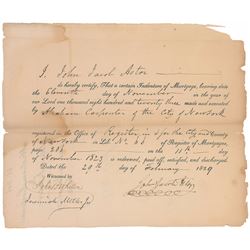 I, John Jacob Astor
do hereby certify, That a certain Indenture of Mortgage, bearing date
the Eleventh day of November in the year of
our Lord one thousand eight hundred and twenty three made and executed
by Abraham Carpenter of the City of New York
registered in the Office of Register, in & for the City and County
of New York in Lib. No. of Register of Mortgages,
page 286 the 11th day
of November 1823 is redeemed, paid off, satisfied, and discharged.
Dated the 29th day of February 1829
Witnessed by
John Jacob Astor
Jeremiah Miller Jr